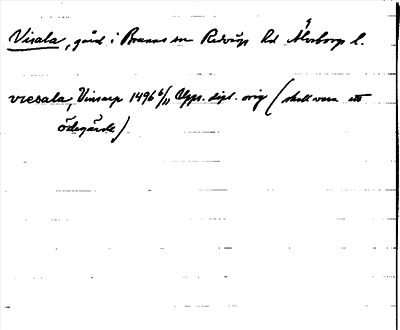 Visala, gård i Brunns sn Redvägs hd Älvsborgs l.
vresala, Vinsarp 1496 6/11 Upps. dipl. orig (skall vara ett
ödegärde)